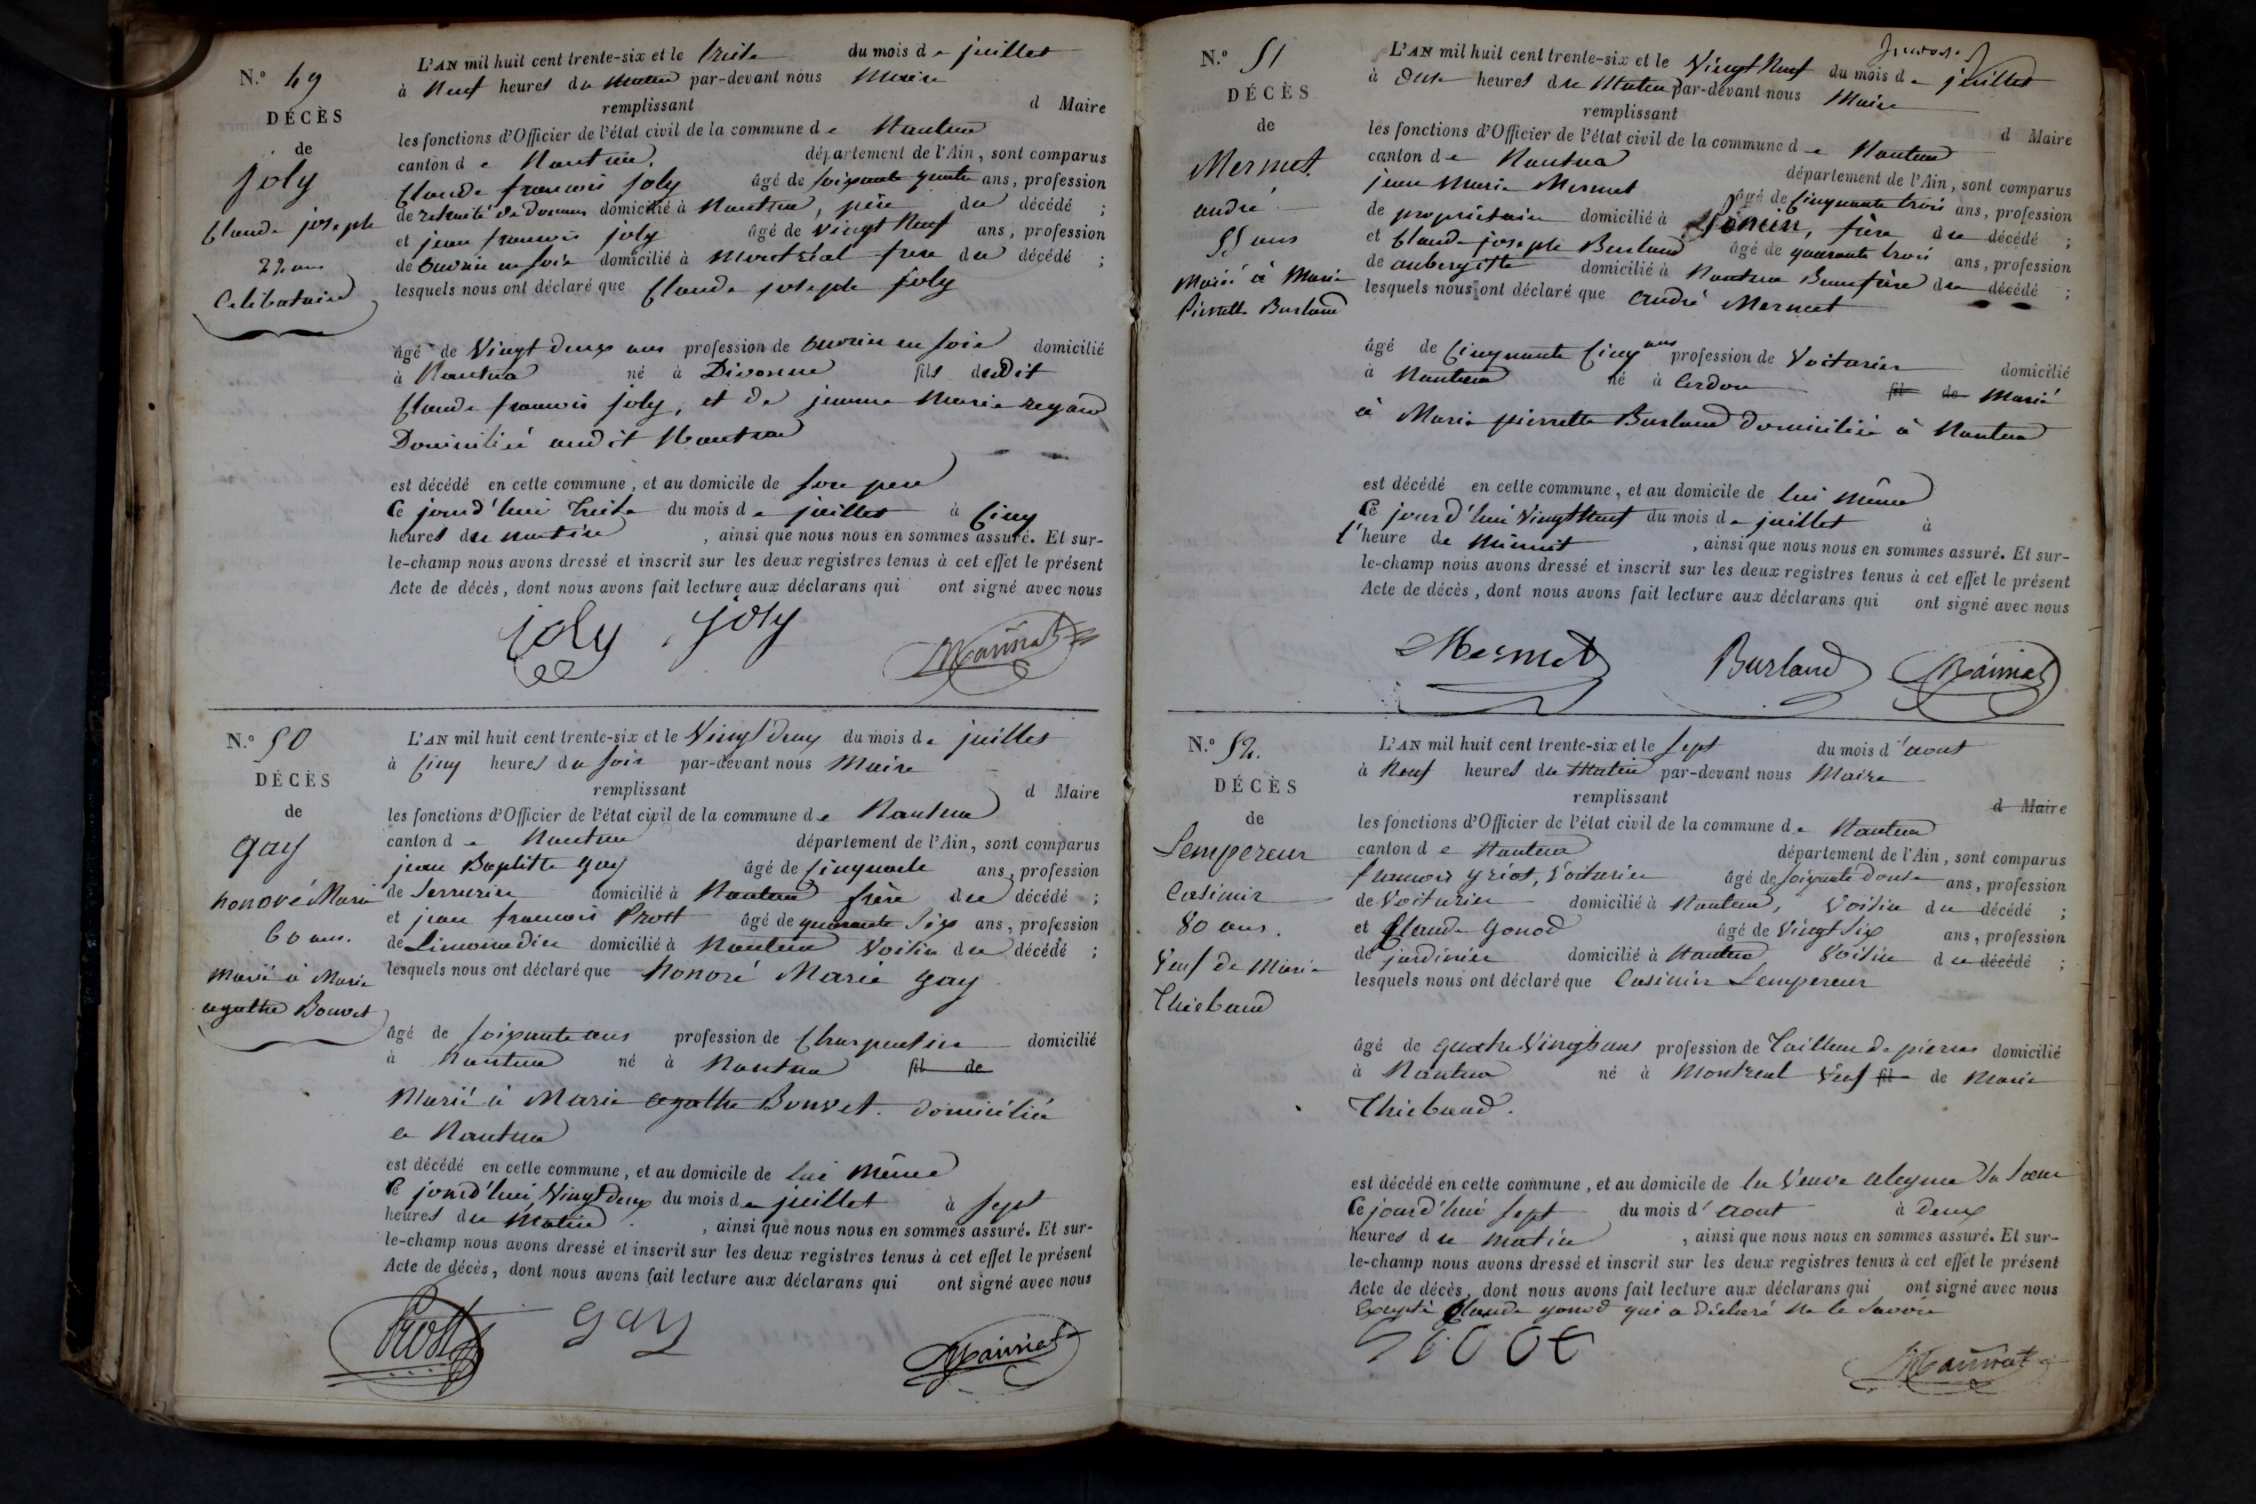 N.° 49
DÉCÈS
de
joly
Claude joseph
22 ans
Celibataire
L'AN mil huit cent trente-six et le treize du mois de juillet
à Neuf heures du matin par-devant nous Maire
remplissant d Maire
les fonctions d'Officier de l'état civil de la commune de Nantua
canton de Nantua, département de l'Ain, sont comparus
Claude francois joly âgé de soixante quatre ans, profession
de retraité de douanes domicilié à Nantua, père du décédé ;
et jean francois joly âgé de vingt Neuf ans, profession
de ouvrier en soie domicilié à Montréal frere du décédé ;
lesquels nous ont déclaré que Claude joseph joly
âgé de Vingt deux ans profession de ouvrier en soie domicilié
à Nantua né à Divonne fils dudit
Claude francois joly, et de jeanne Marie regard
Domiciliés audit Nantua
est décédé en cette commune, et au domicile de son pere
Ce jourd'hui treize du mois de juillet à Cinq
heures du matin, ainsi que nous nous en sommes assuré. Et sur-
le-champ nous avons dressé et inscrit sur les deux registres tenus à cet effet le présent
Acte de décès, dont nous avons fait lecture aux déclarans qui ont signé avec nous
joly joly
N.° 50
DÉCÈS
de
gay
honoré Marie
60 ans.
Marié à Marie
agathe Bouvet
L'AN mil huit cent trente-six et le Vingt deux du mois de juillet
à Cinq heures du soir par-devant nous Maire
remplissant d Maire
les fonctions d'Officier de l'état civil de la commune de Nantua
canton de Nantua département de l'Ain, sont comparus
jean Baptiste gay âgé de Cinquante ans, profession
de Serrurier domicilié à Nantua frère du décédé ;
et jean francois Prost âgé de quarante six ans, profession
de Limonadier domicilié à Nantua Voisin du décédé ;
lesquels nous ont déclaré que honoré Marie gay
âgé de soixante ans profession de Charpentier domicilié
à Nantua né à Nantua fil de
Marié à Marie agathe Bouvet. domiciliée
a Nantua
est décédé en cette commune, et au domicile de lui même
Ce jourd'hui Vingt deux du mois de juillet à sept
heures du Matin, ainsi que nous nous en sommes assuré. Et sur-
le-champ nous avons dressé et inscrit sur les deux registres tenus à cet effet le présent
Acte de décès, dont nous avons fait lecture aux déclarans qui ont signé avec nous
Prost gay
N.° 51
DÉCÈS
de
Mermet
andré
55 ans
Marié à Marie
Pierrette Burland
L'AN mil huit cent trente-six et le Vingt Neuf du mois de juillet
à onze heures du Matin par-devant nous Maire
remplissant d Maire
les fonctions d'Officier de l'état civil de la commune de Nantua
canton de Nantua département de l'Ain, sont comparus
jean Marie Mermet âgé de Cinquante trois ans, profession
de propriétaire domicilié à frère du décédé ;
et Claude joseph Burland âgé de quarante trois ans, profession
de aubergiste domicilié à Nantua Beaufrère du décédé ;
lesquels nous ont déclaré que andré Mermet
âgé de Cinquante Cinq ans profession de Voiturier domicilié
à Nantua né à Cerdon fil de Marié
à Marie pierrette Burland domiciliée à Nantua
est décédé en cette commune, et au domicile de lui même
Ce jourd'hui Vingt Neuf du mois de juillet à
l'heure de Minuit, ainsi que nous nous en sommes assuré. Et sur-
le-champ nous avons dressé et inscrit sur les deux registres tenus à cet effet le présent
Acte de décès, dont nous avons fait lecture aux déclarans qui ont signé avec nous
Mermet Burland
N.° 52.
DÉCÈS
de
Lempereur
Casimir
80 ans.
Veuf de Marie
Thiebaud
L'AN mil huit cent trente-six et le sept du mois d'aout
à Neuf heures du Matin par-devant nous Maire
remplissant d Maire
les fonctions d'Officier de l'état civil de la commune de Nantua
canton de Nantua département de l'Ain, sont comparus
francois griot, Voiturier âgé de soixante douze ans, profession
de Voiturier domicilié à Nantua, Voisin du décédé ;
et Claude Gonod âgé de Vingt six ans, profession
de jardinier domicilié à Nantua Voisin du décédé ;
lesquels nous ont déclaré que Casimir Lempereur
âgé de quatre Vingts ans profession de Tailleur de pierres domicilié
à Nantua né à Montreal Veuf fil de Marie
Thiebaud.
est décédé en cette commune, et au domicile de la Veuve sa sœur
Ce jourd'hui sept du mois d'aout à deux
heures du matin, ainsi que nous nous en sommes assuré. Et sur-
le-champ nous avons dressé et inscrit sur les deux registres tenus à cet effet le présent
Acte de décès, dont nous avons fait lecture aux déclarans qui ont signé avec nous
Excepté Claude gonod qui a déclaré ne le savoir